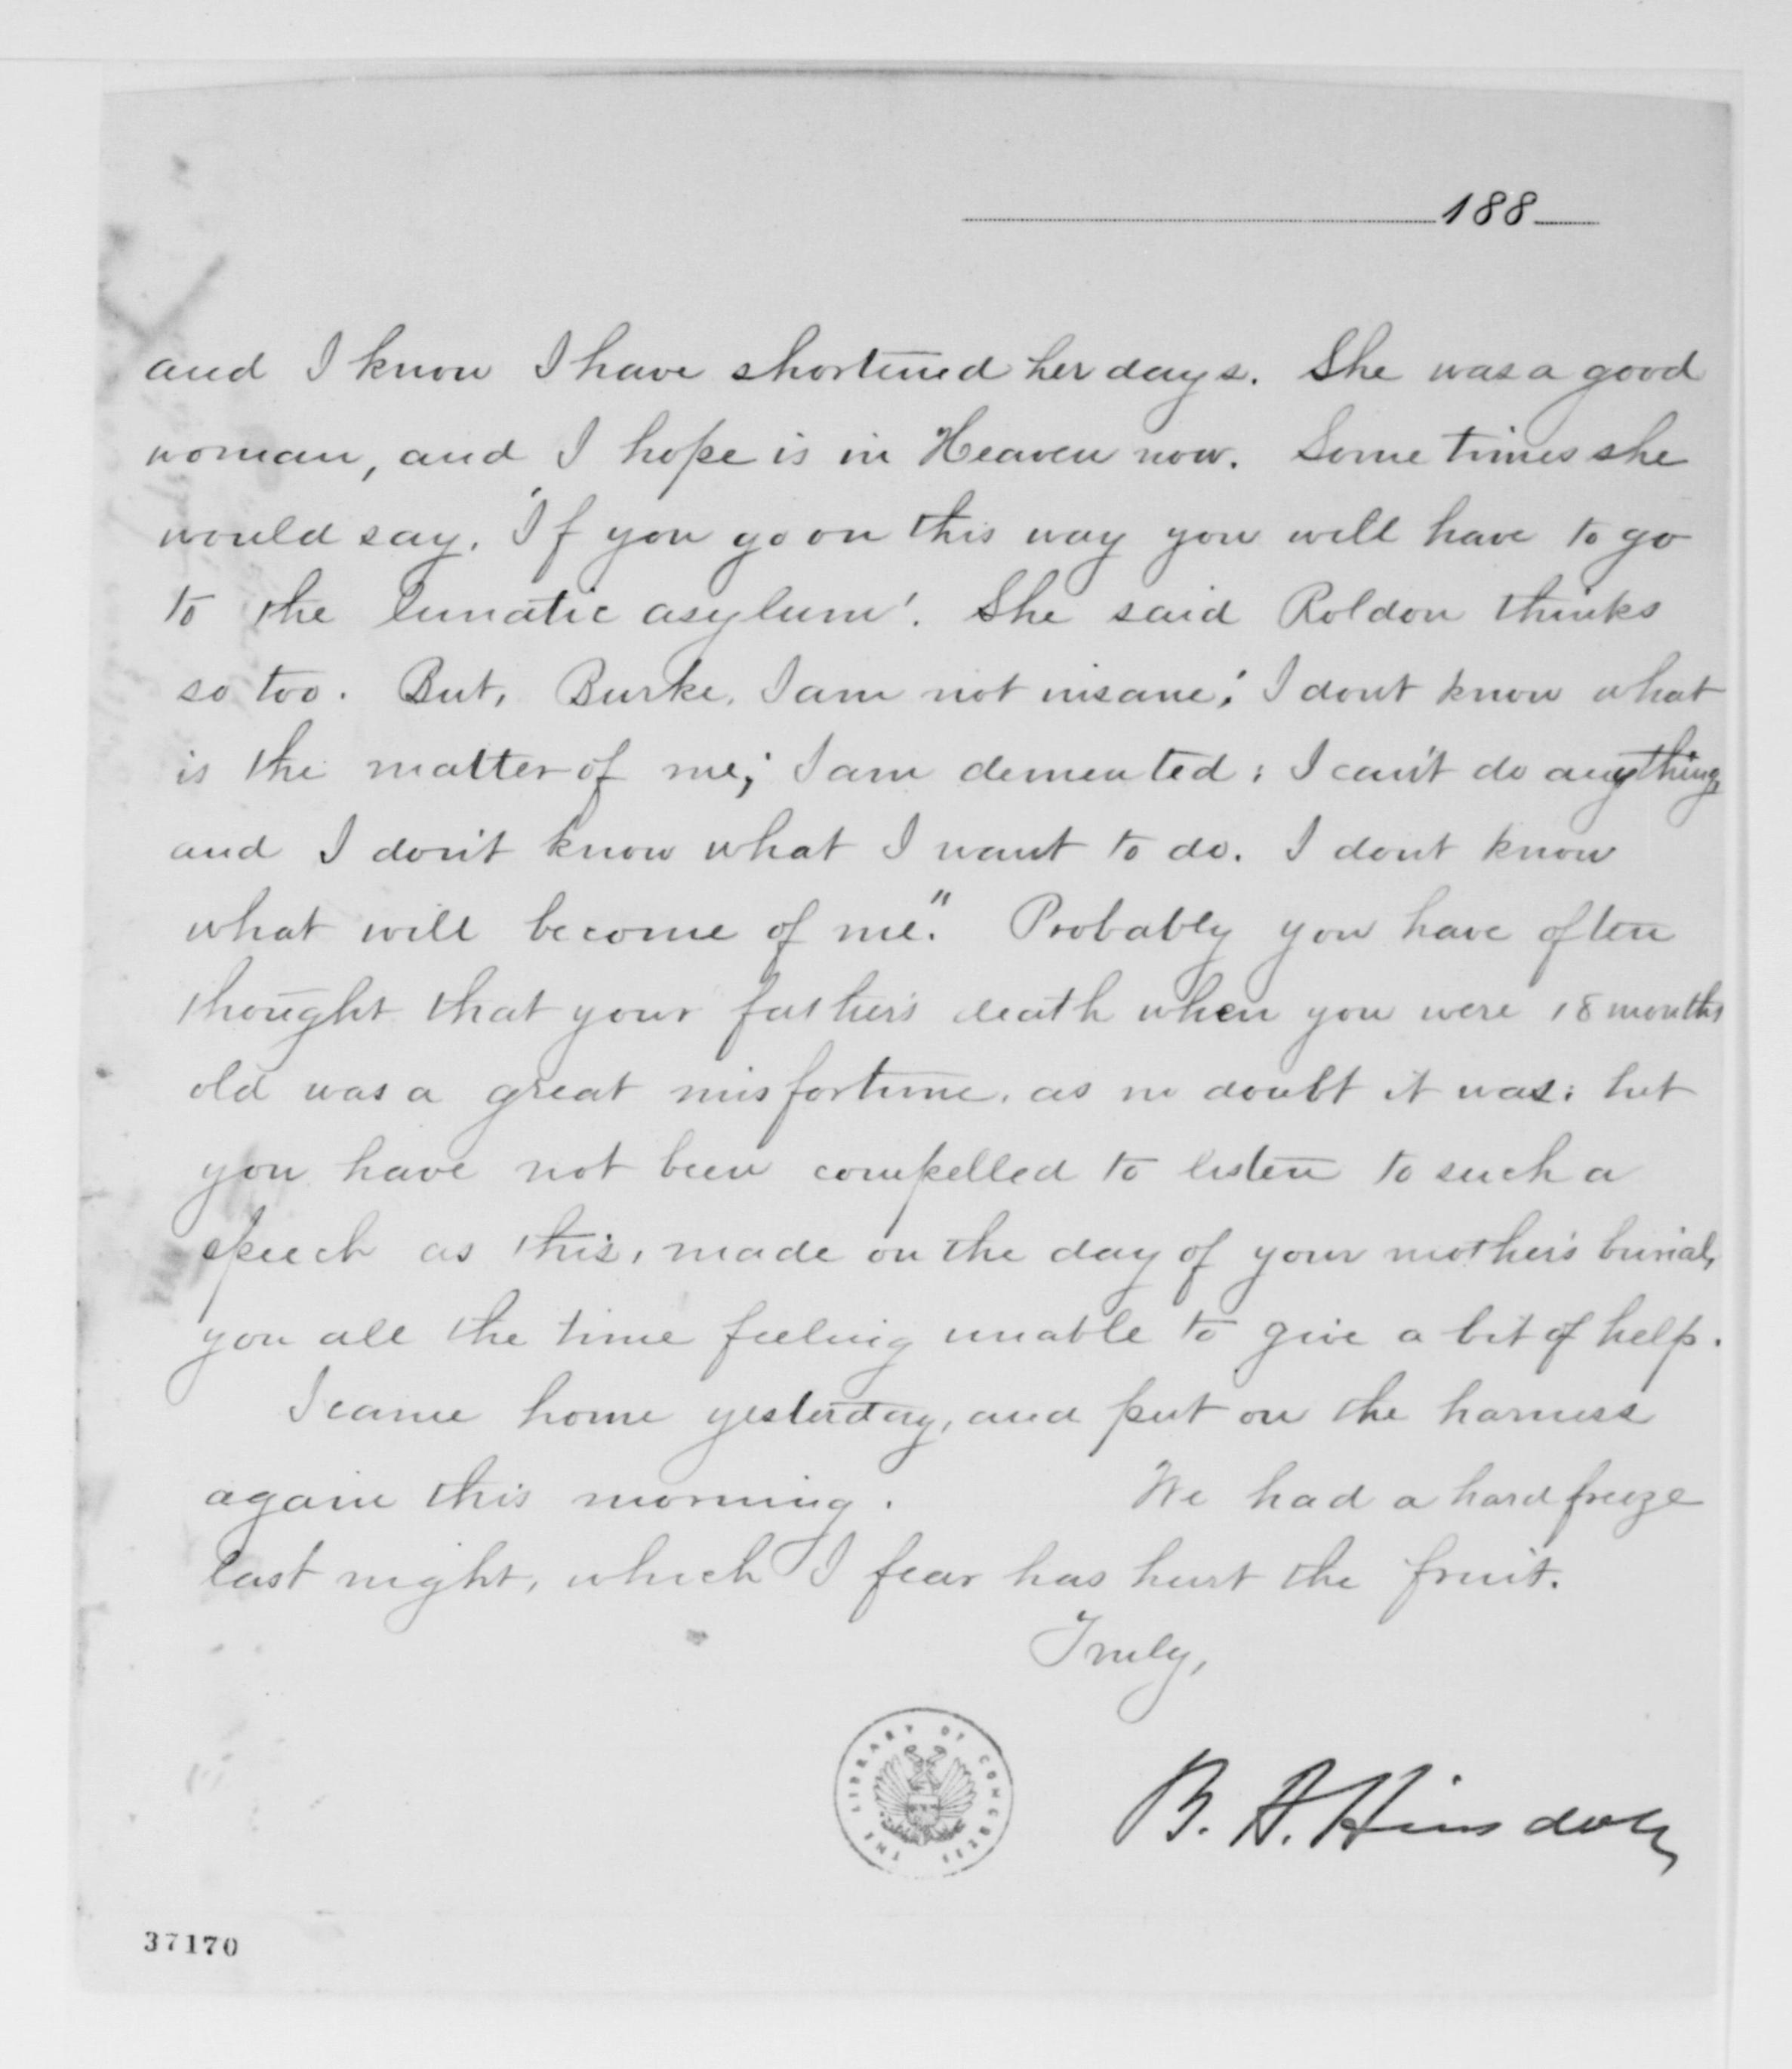 188
and I know I have shortened her days. She was a good
woman, and I hope is in Heaven now. Some times she
would say, 'If you go on this way you will have to go
to the lunatic asylum'. She said Roldon thinks
so too. But, Burke, I am not insane; I dont know what
is the matter of me; I am demented; I can't do anything,
and I don't know what I want to do. I dont know
what will become of me." Probably you have often
thought that your father's death when you were 18 months
old was a great misfortune, as no doubt it was; but
you have not been compelled to listen to such a
speech as this, made on the day of your mother's burial,
you all the time feeling unable to give a bit of help.
I came home yesterday, and put on the harness
again this morning. We had a hard freeze
last night, which I fear has hurt the fruit.
Truly,
B. A. Hinsdale
THE LIBRARY OF CONGRESS
37170